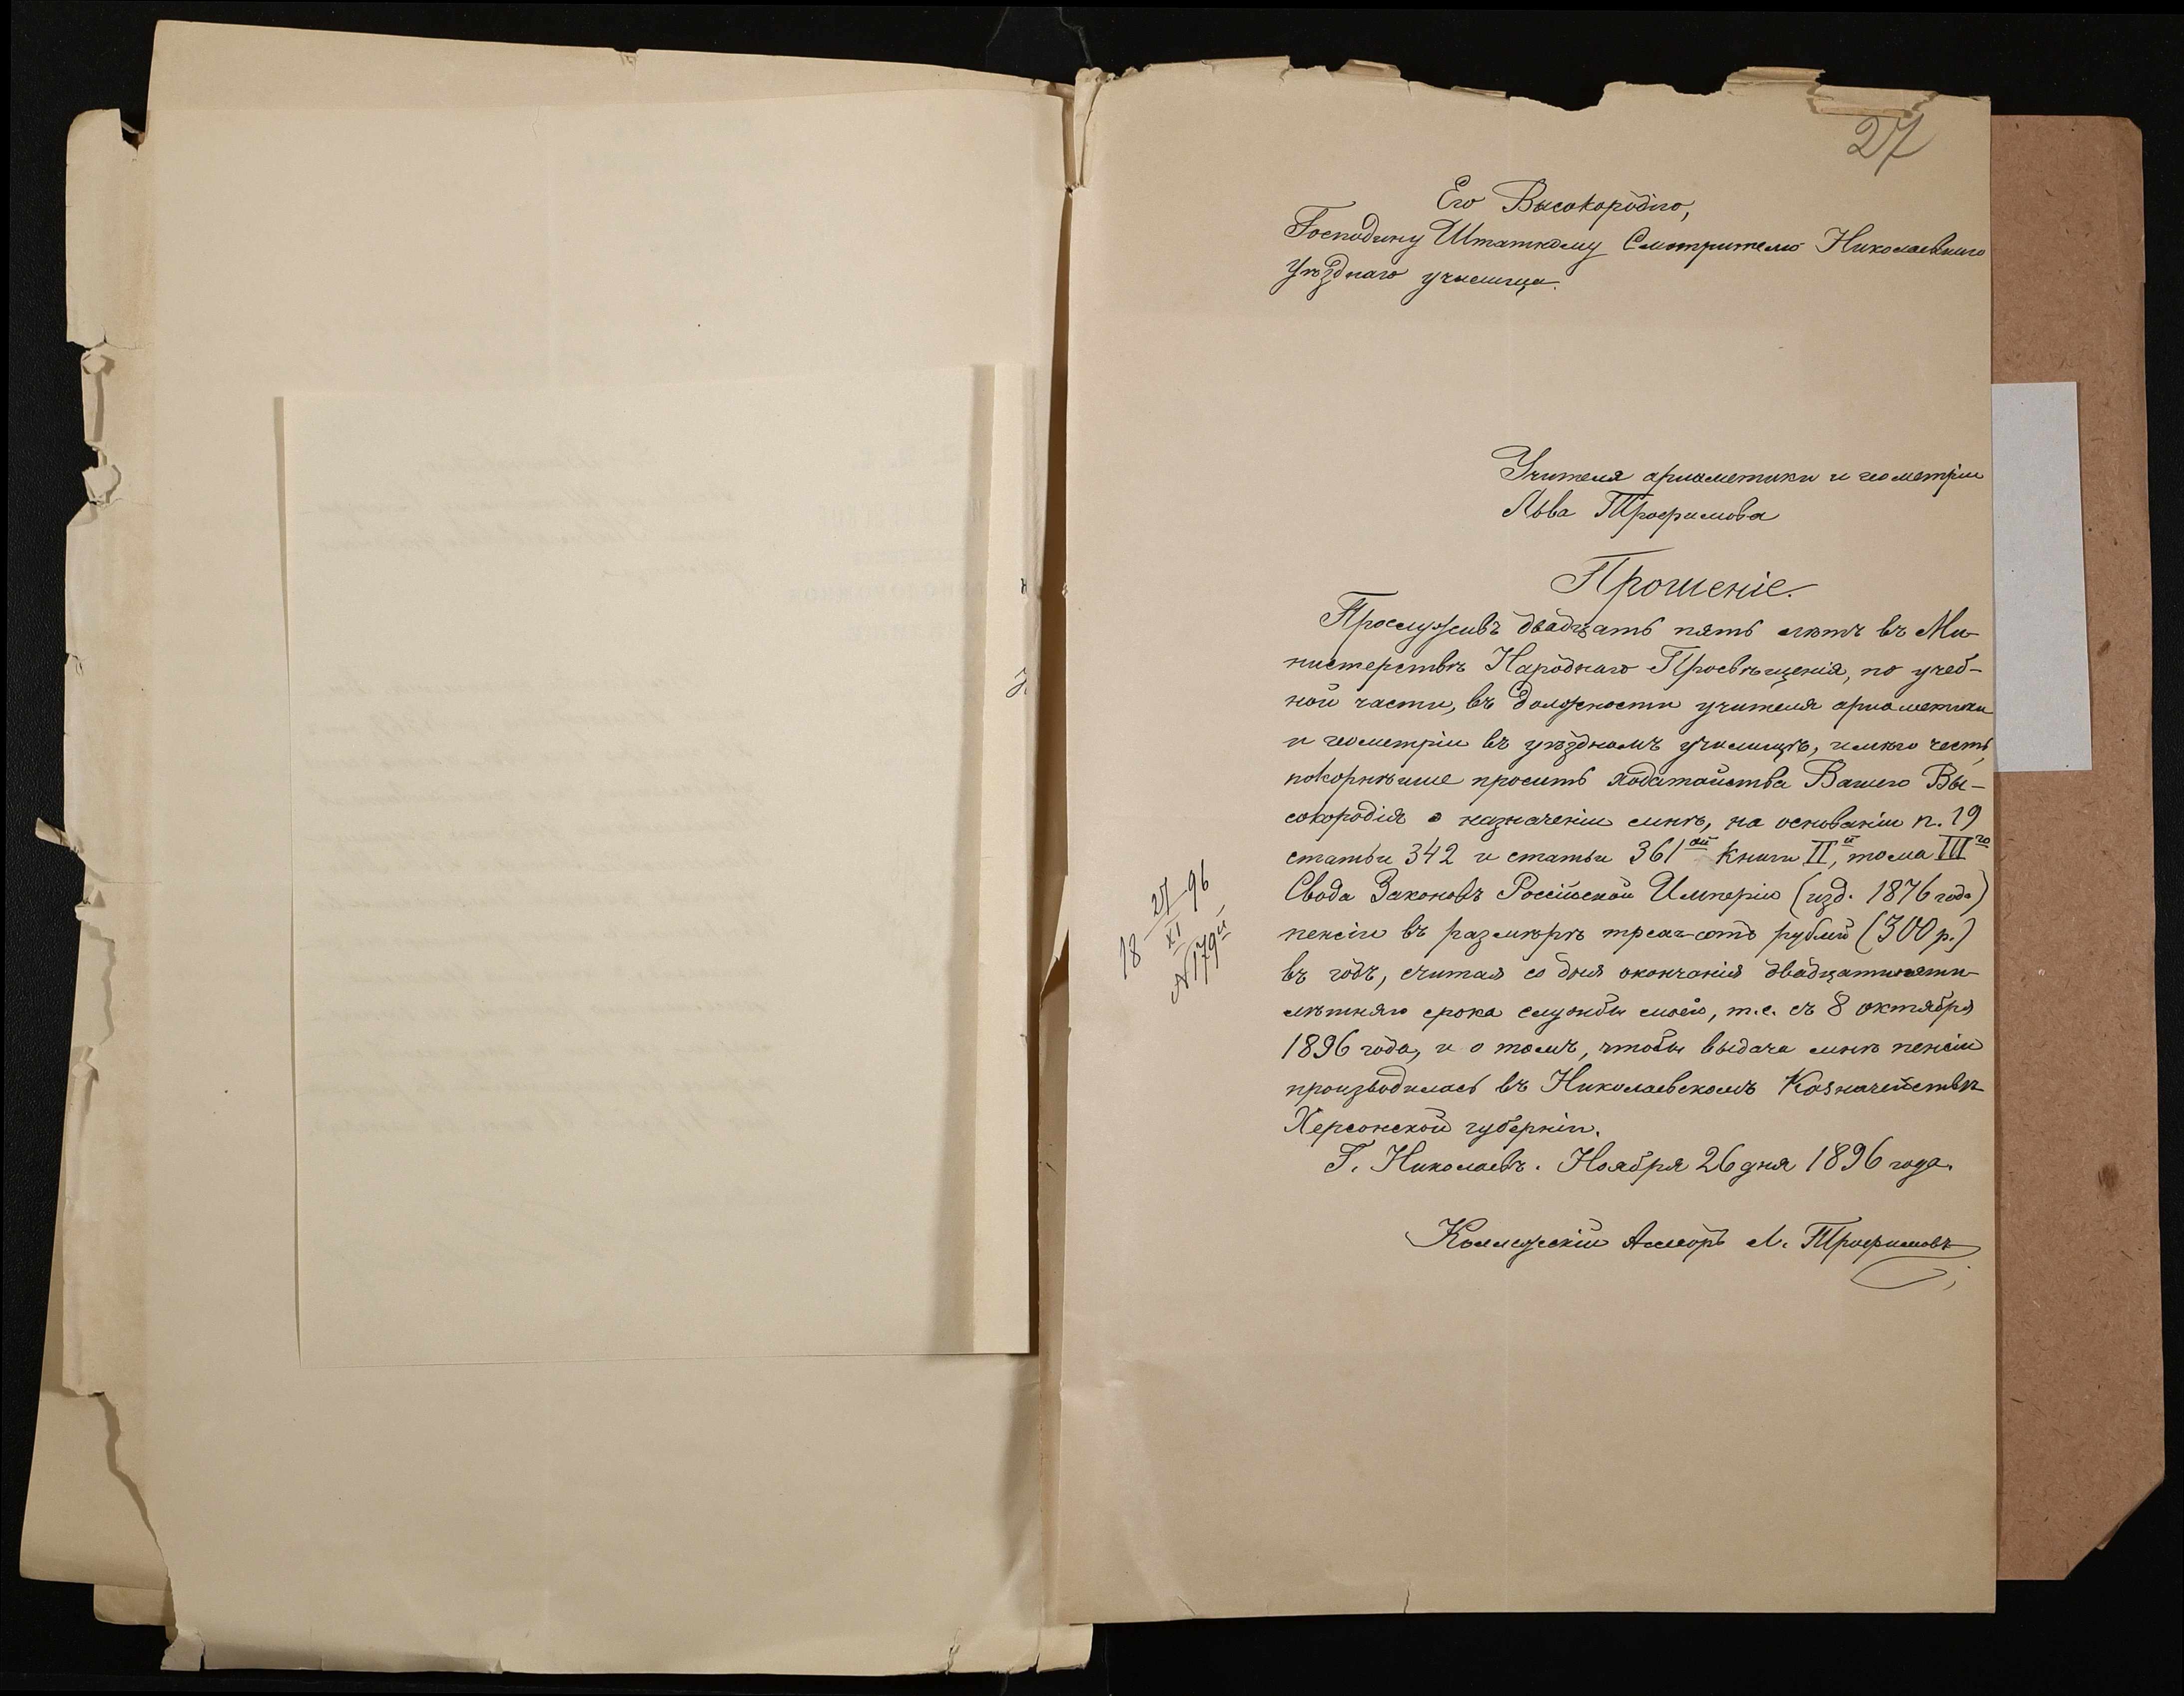 27
Его Высокородію,
Господину Штатному Смотрителю Николаевскаго
уѣзднаго училища.
Учителя ариѳметики и геометріи
Льва Трофимова
Прошеніе.
Прослуживъ двадцать пять лѣтъ въ Ми-
нистерствѣ Народнаго Просвѣщенія, по учеб-
ной части, въ должности учителя ариѳметики
и геометріи въ уѣздномъ училищѣ, имѣю честь
покорнѣйше просить ходатайства Вашего Вы-
сокородія о назначеніи мнѣ, на основаніи п. 19
статьи 342 и статьи 361ой книги IIй, тома IIIго
Свода Законовъ Россійской Имперіи (изд. 1876 года)
пенсіи въ размѣрѣ трехъ-сотъ рублей (300 р.)
въ годъ, считая со дня окончанія двадцатипяти-
лѣтняго срока службы моей, т.е. съ 8 октября
1896 года, и о томъ, чтобы выдача мнѣ пенсіи
производилась въ Николаевскомъ Казначействѣ
Херсонской губерніи.
Г. Николаевъ. Ноября 26 дня 1896 года.
Коллежскій Ассесоръ Л. Трофимовъ
18 27/XI 96
№ 179